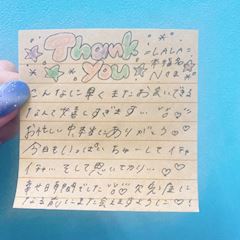 Thank you
=LALA=
本指名
No2
こんなに早くまたお会いできる
なんて嬉しすぎます…
お忙しい中本当にありがとう
今日もいっぱいちゅーしてイチャ
イチャ…そして思いで
幸せ時間でした
なる前にまた会えますように